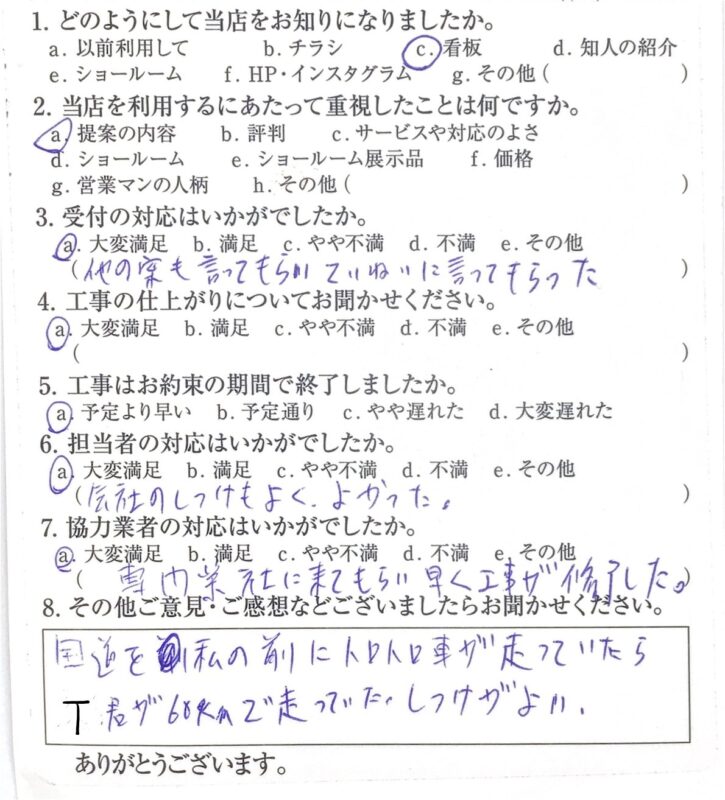 1. どのようにして当店をお知りになりましたか。
a. 以前利用して b. チラシ c. 看板 d. 知人の紹介
e. ショールーム f. HP・インスタグラム g. その他 ( )
2. 当店を利用するにあたって重視したことは何ですか。
a. 提案の内容 b. 評判 c. サービスや対応のよさ
d. ショールーム e. ショールーム展示品 f. 価格
g. 営業マンの人柄 h. その他 ( )
3. 受付の対応はいかがでしたか。
a. 大変満足 b. 満足 c. やや不満 d. 不満 e. その他
(他の案も言ってもらい ていねいに言ってもらった )
4. 工事の仕上がりについてお聞かせください。
a. 大変満足 b. 満足 c. やや不満 d. 不満 e. その他
( )
5. 工事はお約束の期間で終了しましたか。
a. 予定より早い b. 予定通り c. やや遅れた d. 大変遅れた
6. 担当者の対応はいかがでしたか。
a. 大変満足 b. 満足 c. やや不満 d. 不満 e. その他
(会社のしつけもよく、よかった。 )
7. 協力業者の対応はいかがでしたか。
a. 大変満足 b. 満足 c. やや不満 d. 不満 e. その他
( 専門業社に来てもらい早く工事が終了した。)
8. その他ご意見・ご感想などございましたらお聞かせください。
国道を私の前にトロトロ車が走っていたら
T君が60kmで走っていた。しつけがよい。
ありがとうございます。